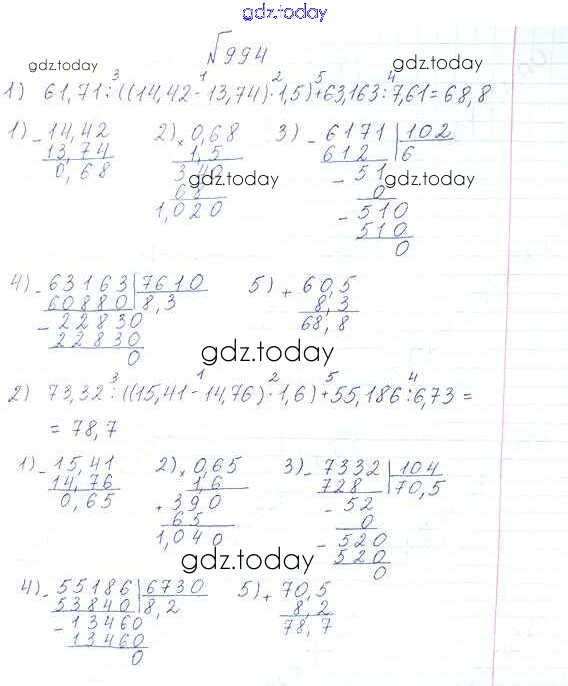 gdz.today
№994
gdz.today gdz.today
1) 61,71:((14,42-13,74)·1,5)+63,163:7,61=68,8
3 1 2 5 4
1) -14,42 2) ×0,68 3) -6171 |102
13,74 1,5 612 6
0,68 340 -51
gdz.today gdz.today
68 0
1,020 -510
510
0
4) -63163 |7610 5) +60,5
60880 8,3 8,3
-22830 68,8
22830
0
gdz.today
2) 73,32:((15,41-14,76)·1,6)+55,186:6,73=
3 1 2 5 4
= 78,7
1) -15,41 2) ×0,65 3) -7332 |104
14,76 1,6 728 70,5
0,65 +390 -52
65 0
1,040 -520
520
0
gdz.today
4) -55186 |6730 5) +70,5
53840 8,2 8,2
-13460 78,7
13460
0
gdz.today